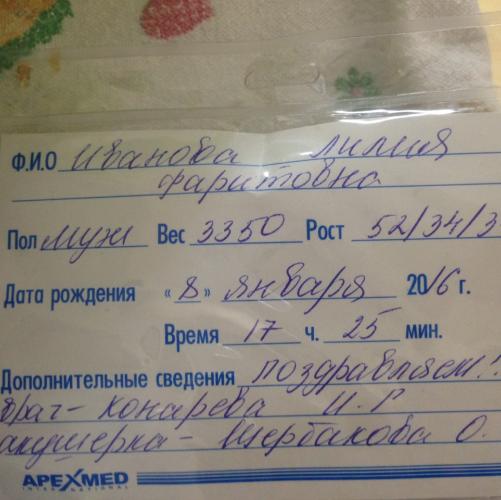 Ф.И.О Иванова Лилия
Фаритовна
Пол муж Вес 3350 Рост 52/34/3
Дата рождения «8» января 2016 г.
Время 17 ч. 25 мин.
Дополнительные сведения поздравляем!
врач - Конарева И.Г
акушерка - Щербакова О.
APEXMED
INTERNATIONAL